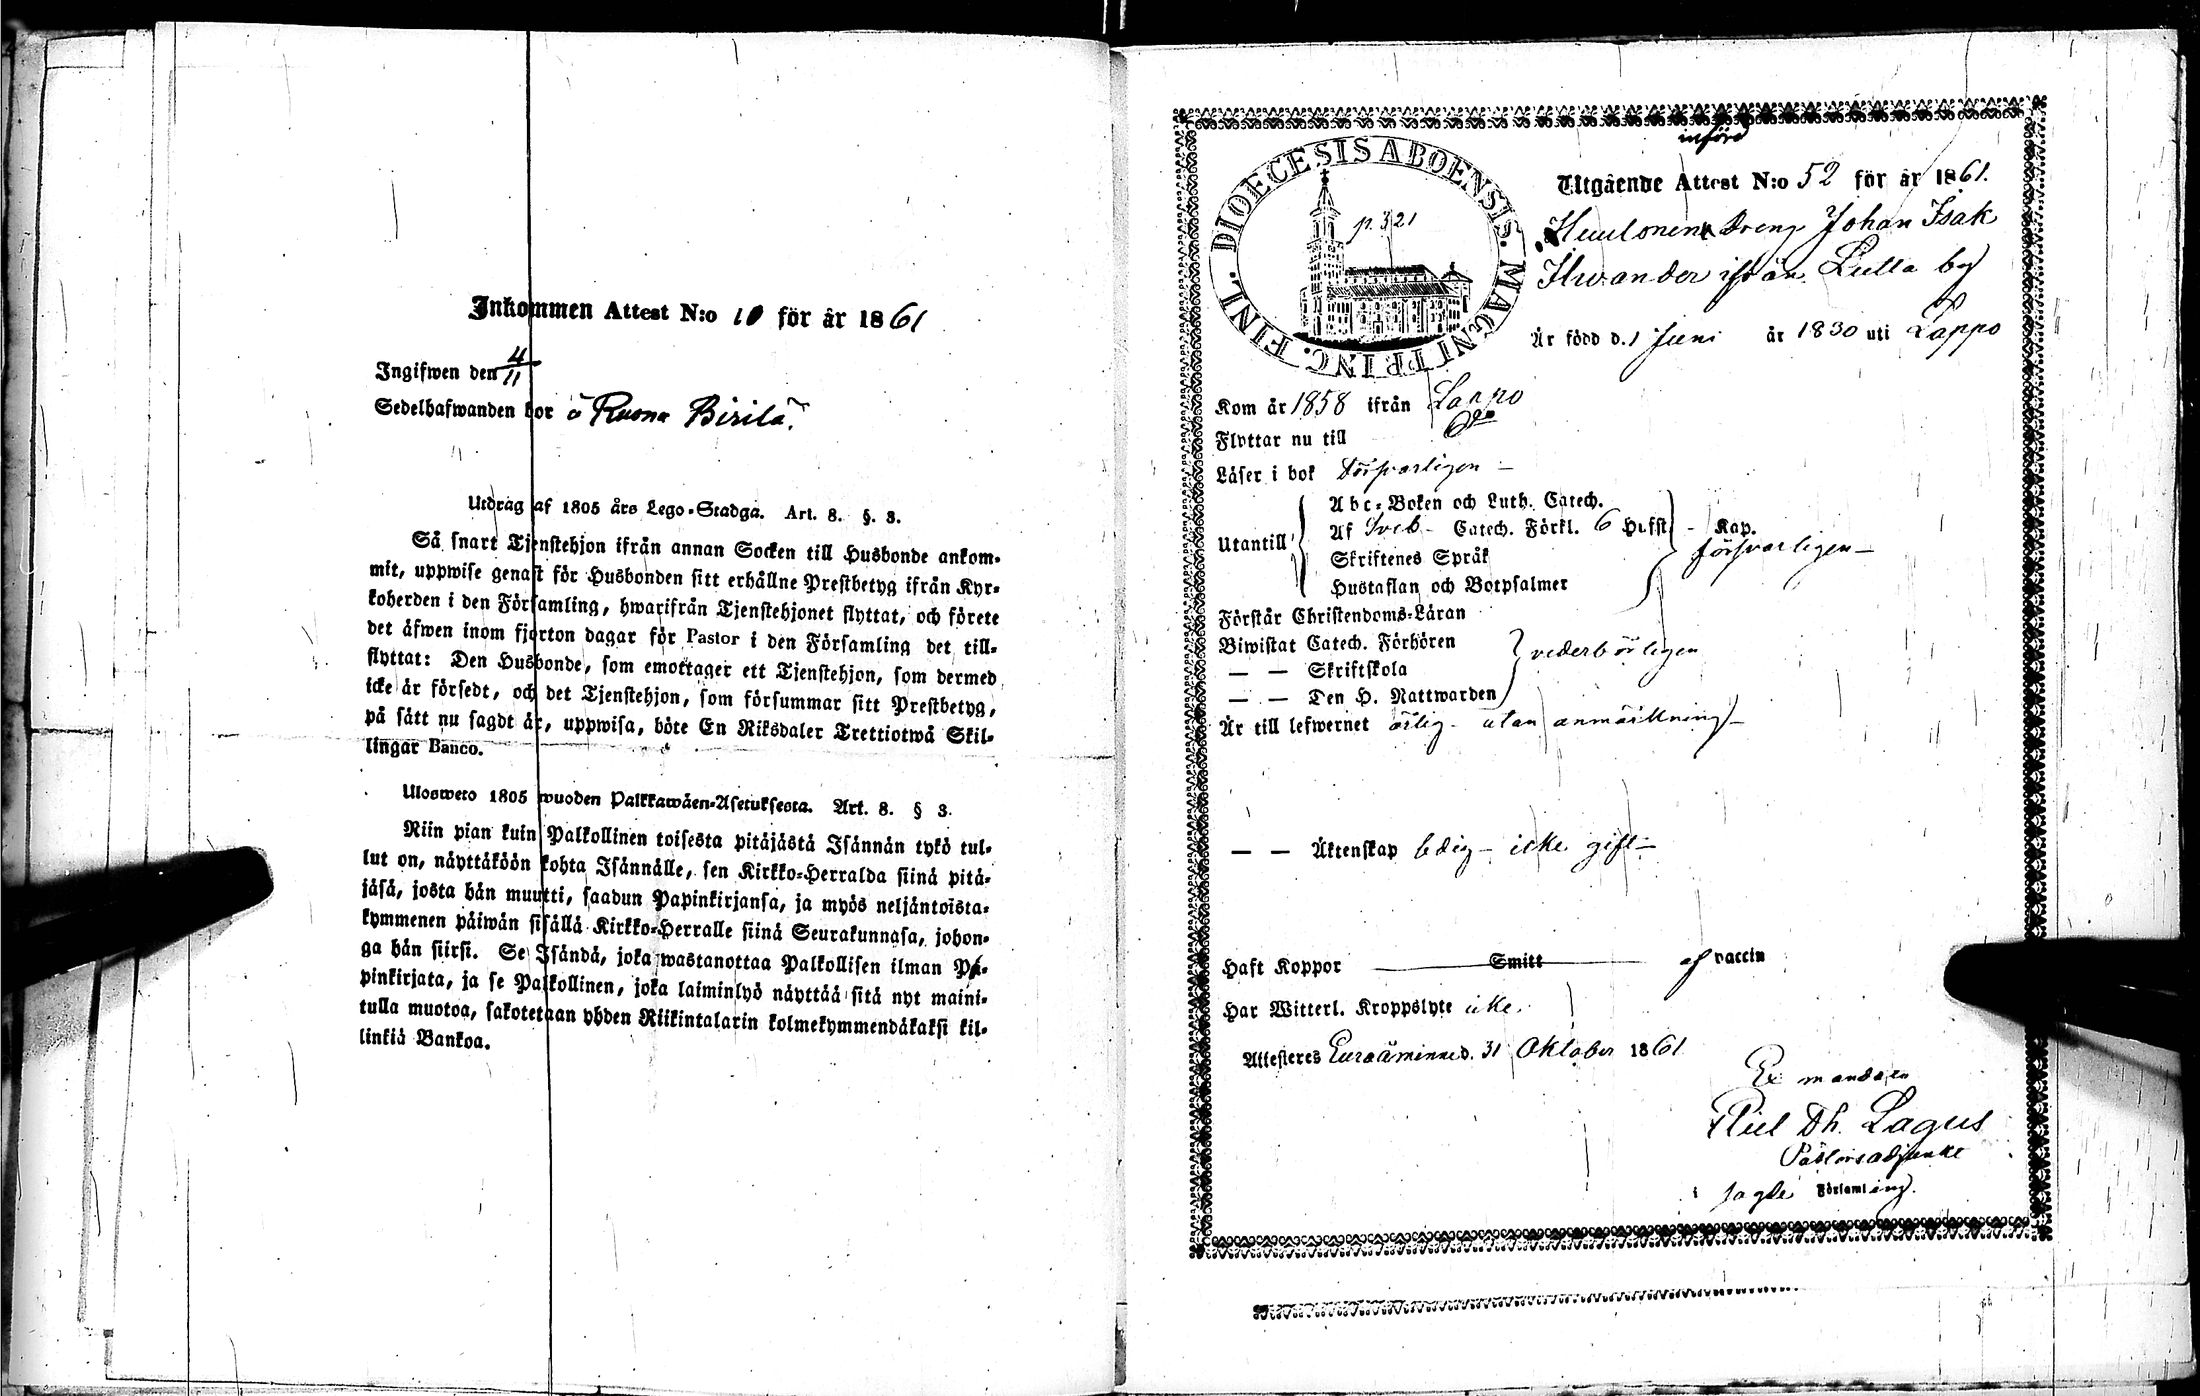 Inkommen Attest N:o 10 för år 1861
Ingifwen den 4/11
Sedelhafwanden bor å Ruona Birilä.
Utdrag af 1805 års Lego-Stadga. Art. 8. §. 3.
Så snart Tjenstehjon ifrån annan Socken till Husbonde ankom-
mit, uppwise genast för Husbonden sitt erhållne Prestbetyg ifrån Kyr-
koherden i den Församling, hwarifrån Tjenstehjonet flyttat, och förete
det äfwen inom fjorton dagar för Pastor i den Församling det till-
flyttat: Den Husbonde, som emottager ett Tjenstehjon, som dermed
icke är försedt, och det Tjenstehjon, som försummar sitt Prestbetyg,
på sätt nu sagdt är, uppwisa, böte En Riksdaler Trettiotwå Skil-
lingar Banco.
Ulosweto 1805 wuoden Palkkawäen-Asetuksesta. Art. 8. § 3.
Niin pian kuin Palkollinen toisesta pitäjästä Isännän tykö tul-
lut on, näyttäköön kohta Isännälle, sen Kirkko-Herralda siinä pitä-
jäsä, josta hän muutti, saadun Papinkirjansa, ja myös neljäntoista-
kymmenen päiwän sisällä Kirkko-Herralle siinä Seurakunnasa, johon-
ga hän siirsi. Se Isändä, joka wastanottaa Palkollisen ilman Pa-
pinkirjata, ja se Palkollinen, joka laiminlyö näyttää sitä nyt maini-
tulla muotoa, sakotetaan yhden Riikintalarin kolmekymmendäkaksi kil-
linkiä Bankoa.
införd
DIOECESIS ABOENSIS. MAGNI PRINC. FINL.
p. 321
Utgående Attest N:o 52 för år 1861.
Dreng Johan Isak
ifrån Lutta by
Är född d. 1 Juni år 1830 uti Lappo
Kom år 1858 ifrån Lappo
Flyttar nu till do
Läser i bok försvarligen
Utantill
Abc-Boken och Luth. Catech.
Af Sveb. Catech. Förkl. 6 Hufst. - Kap.
Skriftenes Språk
försvarligen
Hustaflan och Botpsalmer
Förstår Christendoms-Läran
Biwistat Catech. Förhören
vederbörligen
— — Skriftskola
— — Den H. Nattwarden
Är till lefwernet ärlig - utan anmärkning
— — Äktenskap ledig - icke gift
Haft Koppor Smitt af vaccin
Har Witterl. Kroppslyte icke.
Attesteres Euraåminne d. 31 Oktober 1861
Ex mandato
Dh. Lagus
Pastorsadjunkt
i sagde Församling.